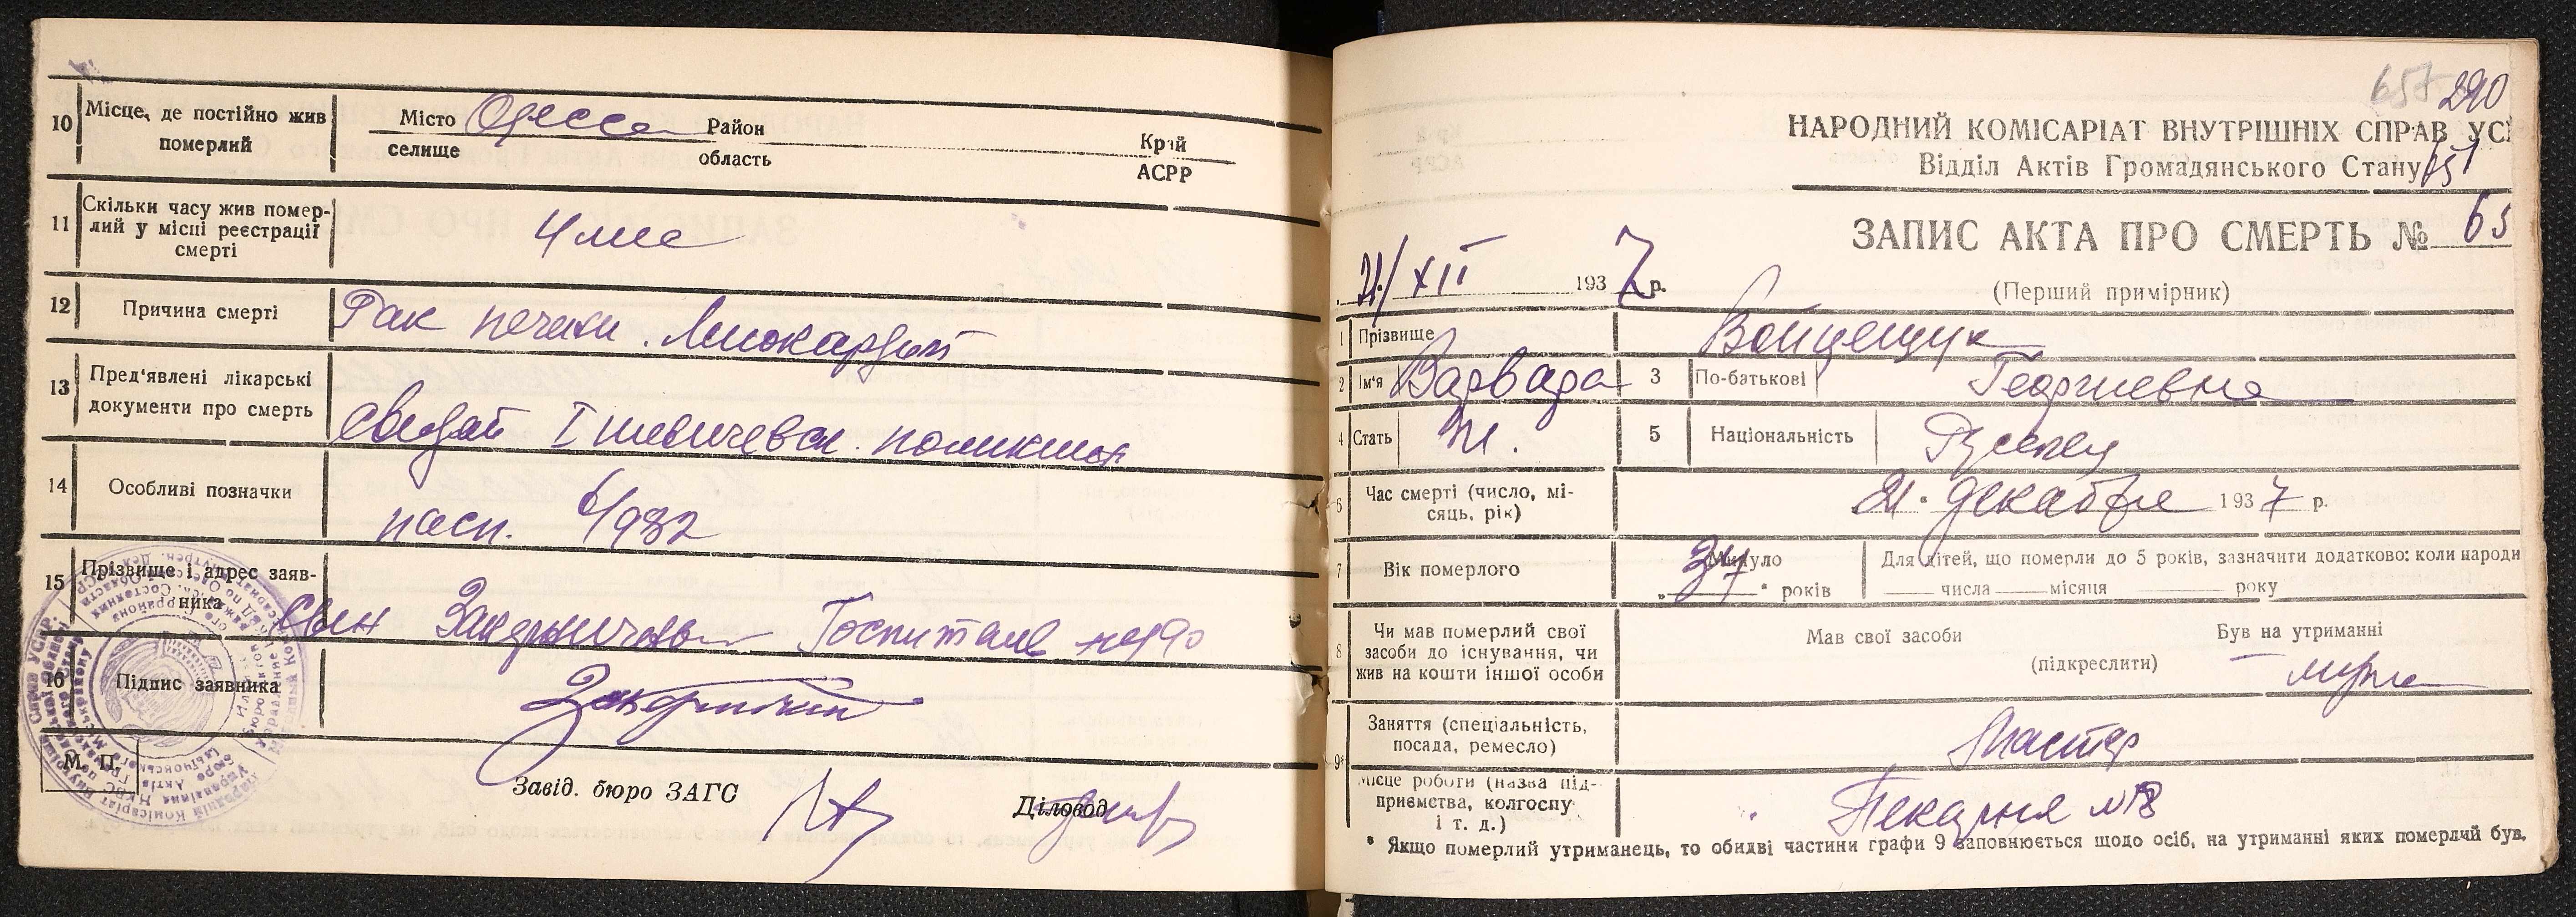 10 Місце, де постійно жив померлий
Місто селище Одесса Район область Край АСРР
11 Скільки часу жив померлий у місці реєстрації смерті
4 мес
12 Причина смерті
Рак печени. Миокардит
13 Пред'явлені лікарські документи про смерть
I поликлин
14 Особливі позначки
пасп. 1932
15 Прізвище і адрес заявника
Госпитальн
16 Підпис заявника
М. П.
Завід. бюро ЗАГС
Діловод
657 290
НАРОДНИЙ КОМІСАРІАТ ВНУТРІШНІХ СПРАВ УС
Відділ Актів Громадянського Стану
ЗАПИС АКТА ПРО СМЕРТЬ № 65
21/XII 1937 р.
(Перший примірник)
1 Прізвище Войцещук
2 Ім'я Варвара 3 По-батькові Георгиевна
4 Стать ж. 5 Національність Русск
6 Час смерті (число, місяць, рік) 21. декабря 1937 р.
7 Вік померлого Минуло 37 років
Для дітей, що померли до 5 років, зазначити додатково: коли народи
числа місяця року
8 Чи мав померлий свої засоби до існування, чи жив на кошти іншої особи
Мав свої засоби Був на утриманні
(підкреслити) мужа
9* Заняття (спеціальність, посада, ремесло) Мастер
Місце роботи (назва підприємства, колгоспу і т. д.) Пекарня №18
* Якщо померлий утриманець, то обидві частини графи 9 заповнюється щодо осіб, на утриманні яких померлий був.